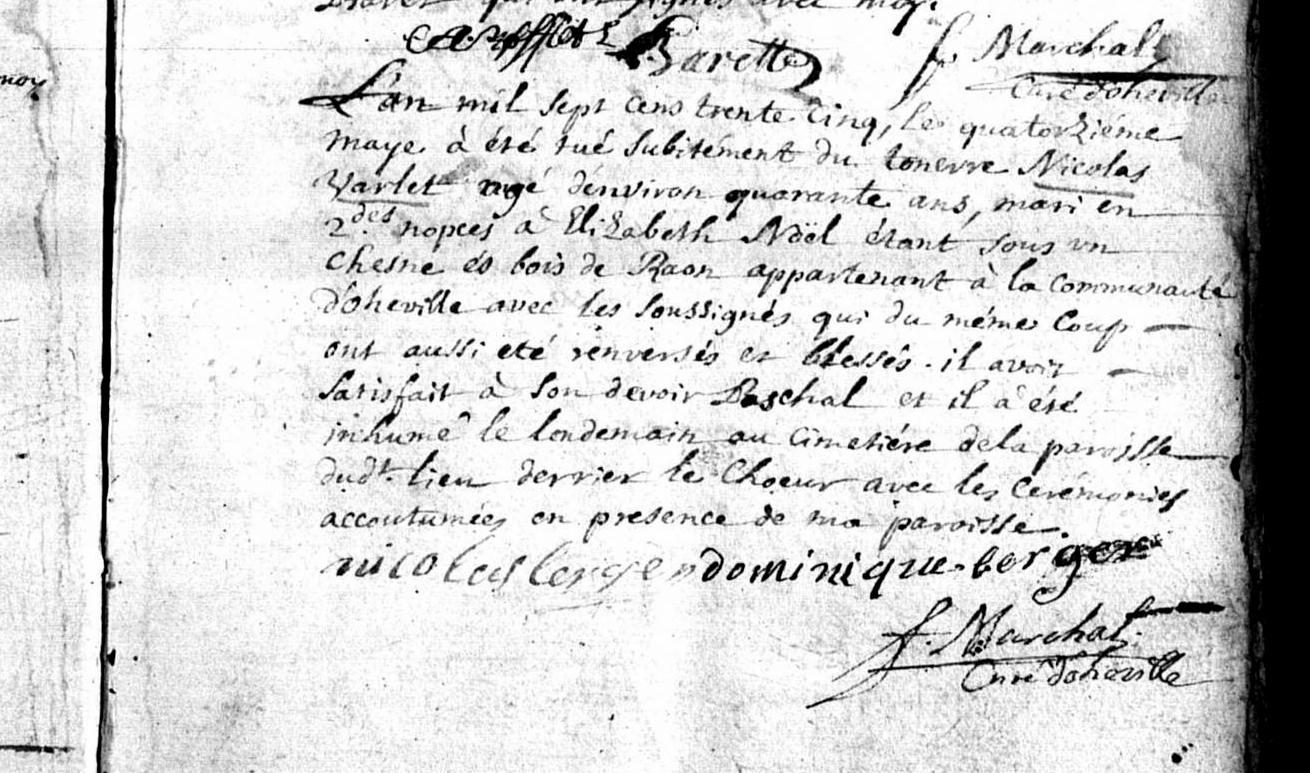 qui ont signés avec moy.
Barette f. Marchal
Curé d'oheville
L'an mil sept cens trente cinq, le quatorziéme
maye à été tué subitément du tonerre Nicolas
Varlet agé d'environ quarante ans, mari en
2.des nopces à Elizabeth Nöel étant sous un
chesne és bois de Raon appartenant à la communauté
d'oheville avec les soussignés qui du méme coup
ont aussi eté renversés et blessés. il avoit
satisfait à son devoir Paschal et il à été
inhumé le lendemain au cimetiére de la paroisse
dudt. lieu derrier le Choeur avec les cerémonies
accoutumées en presence de ma paroisse.
nicolas berger dominique berger
f. Marchal.
Curé d'oheville